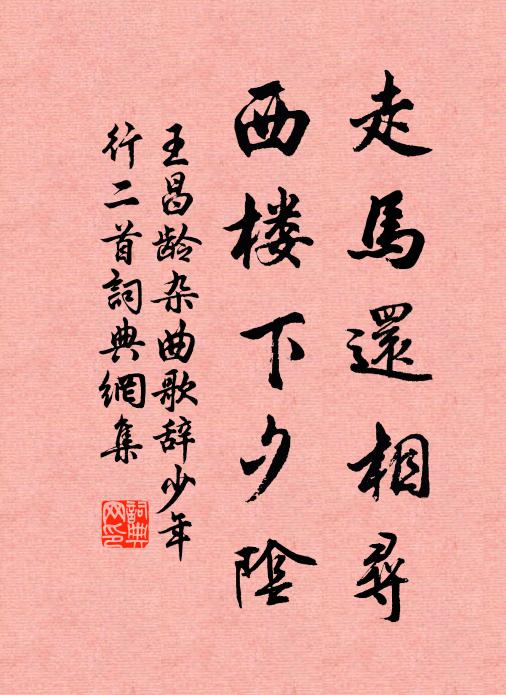 走馬還相尋
西楼下夕陰
王昌龄杂曲歌辞少年
行二首詞典網集
詞典
网印